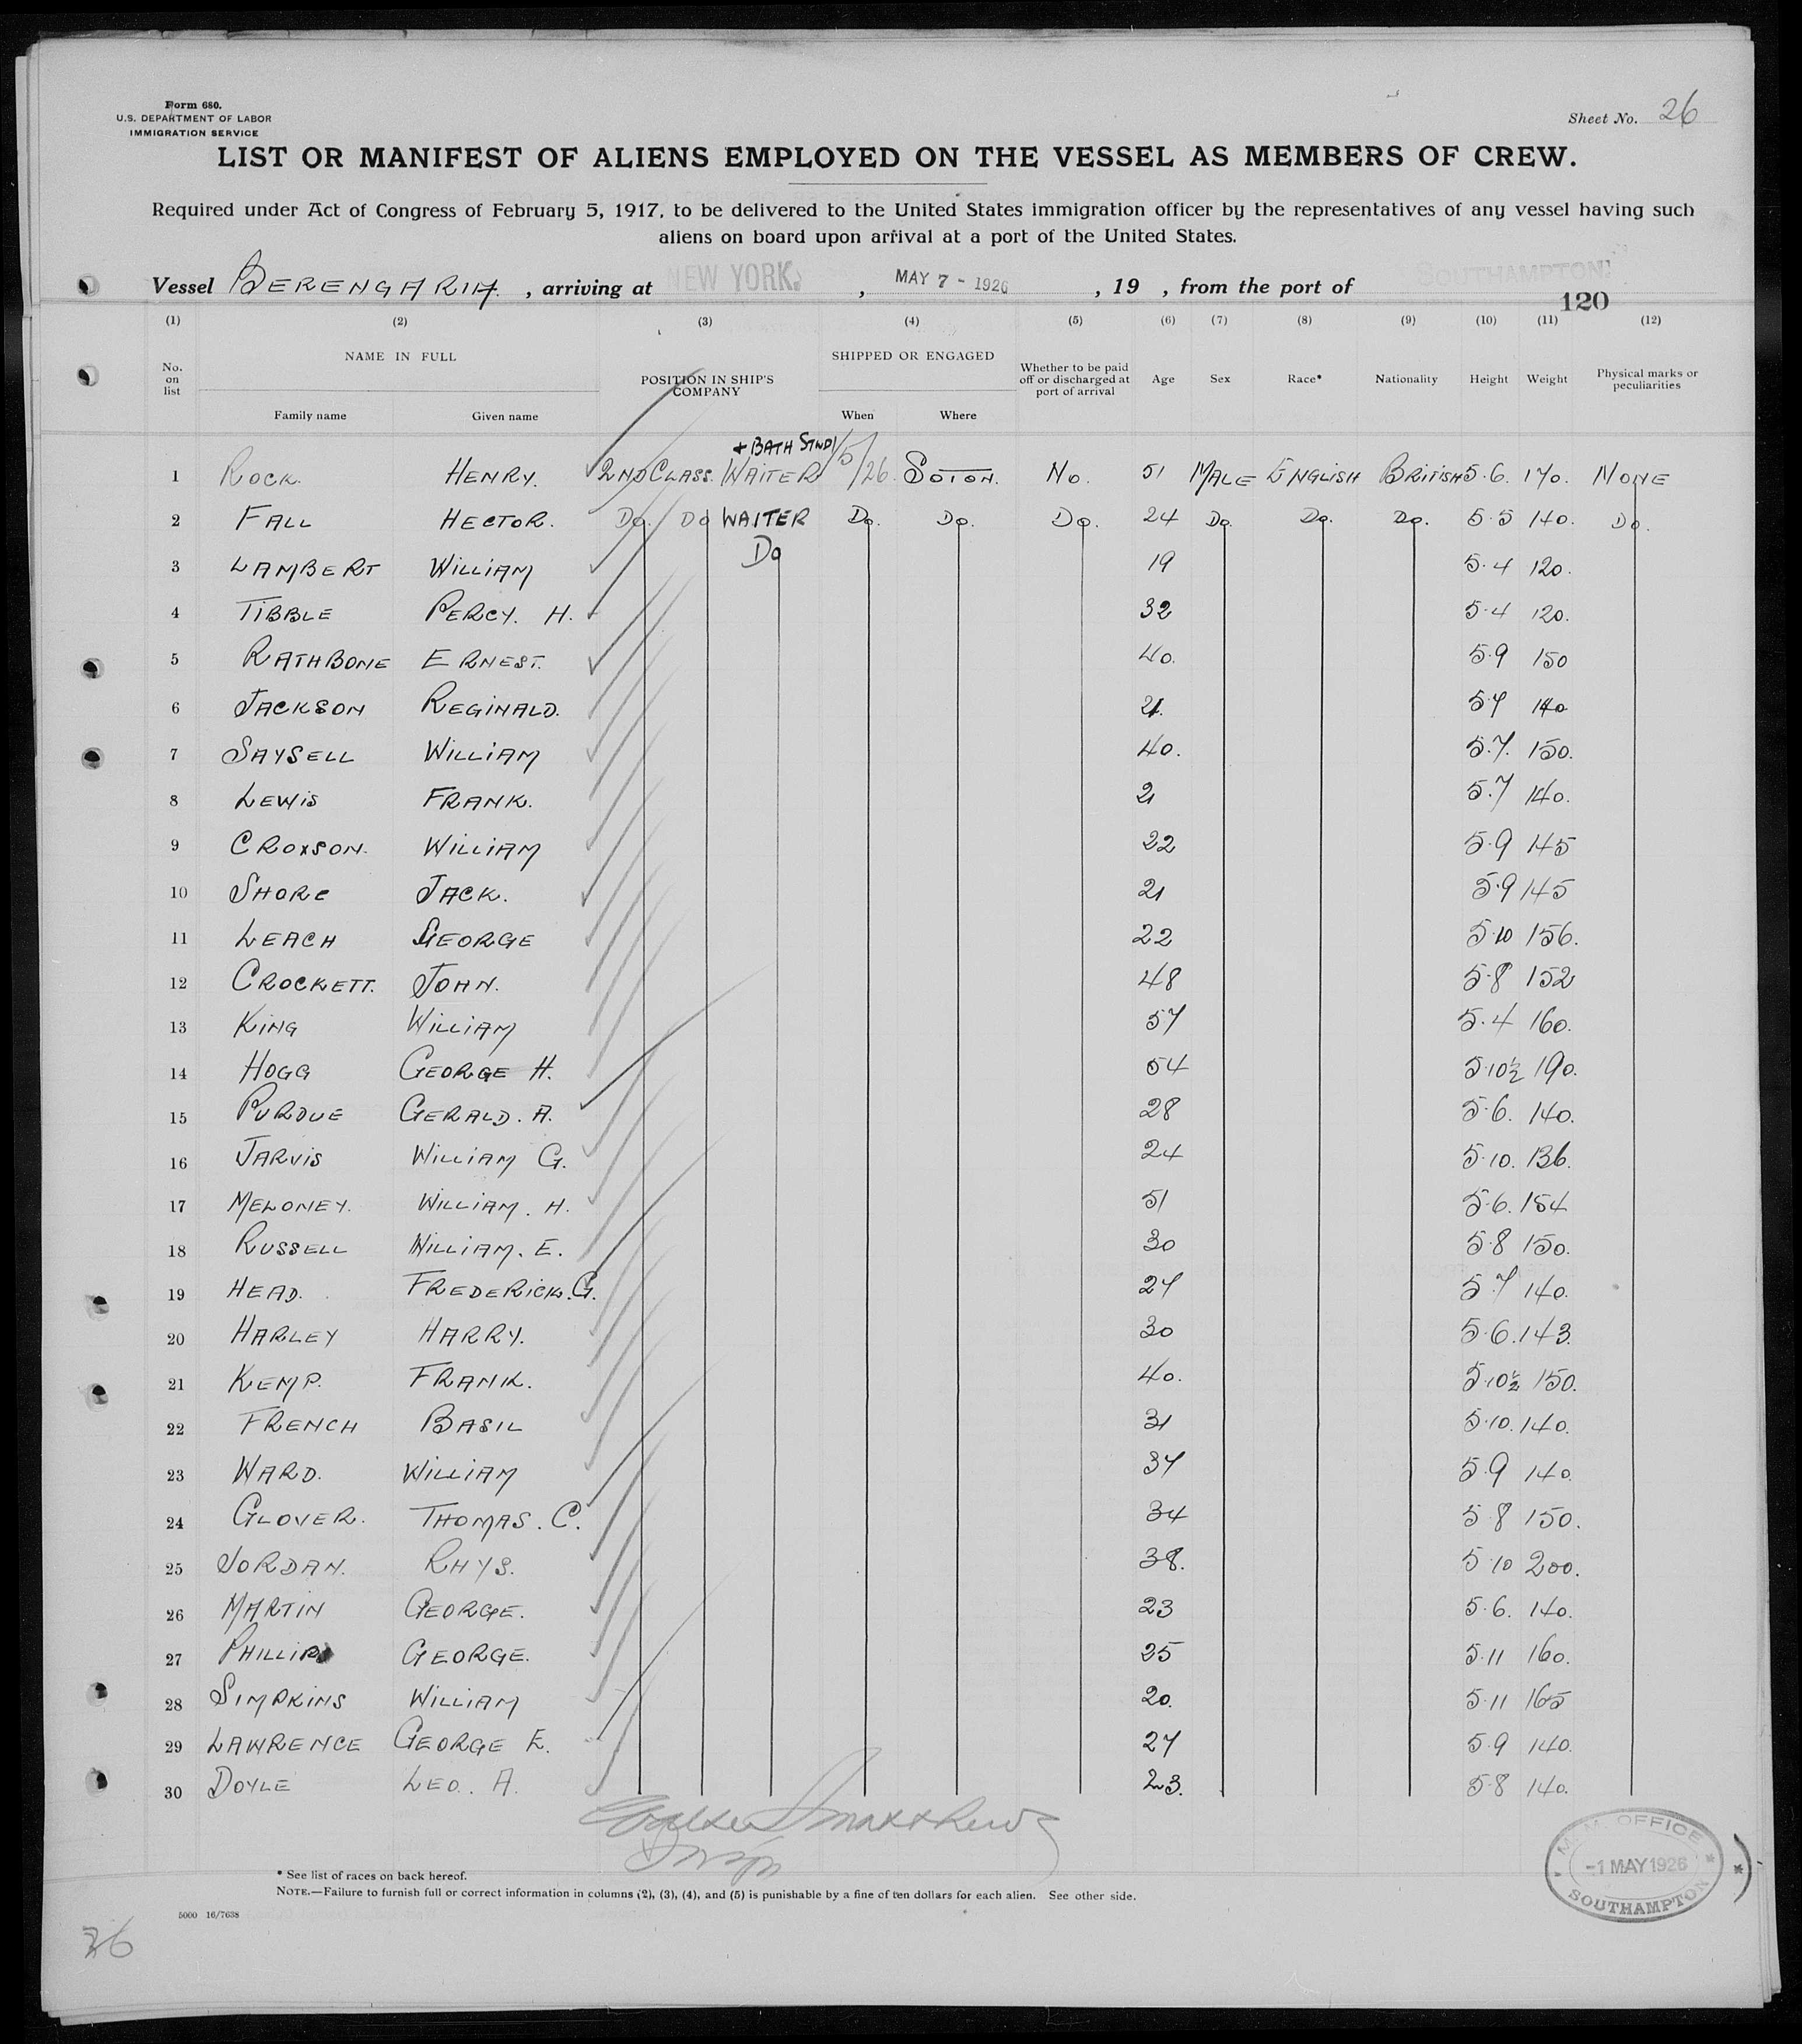 Form 680.
U.S. DEPARTMENT OF LABOR
IMMIGRATION SERVICE
Sheet No. 26
LIST OR MANIFEST OF ALIENS EMPLOYED ON THE VESSEL AS MEMBERS OF CREW.
Required under Act of Congress of February 5, 1917, to be delivered to the United States immigration officer by the representatives of any vessel having such
aliens on board upon arrival at a port of the United States.
Vessel BERENGARIA. , arriving at NEW YORK , MAY 7 - 1926 , 19 , from the port of SOUTHAMPTON
120
(1) (2) (3) (4) (5) (6) (7) (8) (9) (10) (11) (12)
No. on list NAME IN FULL Family name Given name POSITION IN SHIP'S COMPANY SHIPPED OR ENGAGED When Where Whether to be paid off or discharged at port of arrival Age Sex Race* Nationality Height Weight Physical marks or peculiarities
+ BATH STWD
1 ROCK. HENRY. 2ND CLASS. WAITER 1/5/26. SOTON. No. 51 MALE ENGLISH BRITISH 5.6. 170. NONE
2 FALL HECTOR. Do. Do WAITER Do. Do. Do. 24 Do. Do. Do. 5.5 140. Do.
3 LAMBERT WILLIAM Do 19 5.4 120.
4 TIBBLE PERCY. H. 32 5.4 120.
5 RATHBONE ERNEST. 40. 5.9 150
6 JACKSON REGINALD. 21. 5 7 140
7 SAYSELL WILLIAM 40. 5.7. 150.
8 LEWIS FRANK. 21 5.7 140.
9 CROXSON. WILLIAM 22 5.9 145
10 SHORE JACK. 21 5.9 145
11 LEACH GEORGE 22 5.10 156.
12 CROCKETT. JOHN. 48 5.8 152
13 KING WILLIAM 57 5.4 160.
14 HOGG GEORGE H. 54 5.10½ 190.
15 PURDUE GERALD. A. 28 5.6. 140.
16 JARVIS WILLIAM G. 24 5.10. 136.
17 MELONEY. WILLIAM. H. 51 5.6. 154
18 RUSSELL WILLIAM. E. 30 5.8 150.
19 HEAD. FREDERICK. G. 27 5.7 140.
20 HARLEY HARRY. 30 5.6. 143.
21 KEMP. FRANK. 40. 5.10½ 150.
22 FRENCH BASIL 31 5.10. 140.
23 WARD. WILLIAM 37 5.9 140.
24 GLOVER. THOMAS. C. 34 5 8 150.
25 JORDAN. RHYS. 38. 5 10 200.
26 MARTIN GEORGE. 23 5.6. 140.
27 PHILLIP GEORGE. 25 5.11 160.
28 SIMPKINS WILLIAM 20. 5.11 165
29 LAWRENCE GEORGE E. 27 5.9 140.
30 DOYLE LEO. A. 23. 5.8 140.
* See list of races on back hereof.
NOTE.—Failure to furnish full or correct information in columns (2), (3), (4), and (5) is punishable by a fine of ten dollars for each alien. See other side.
5000 16/7638
M.M. OFFICE
-1 MAY 1926
SOUTHAMPTON
26